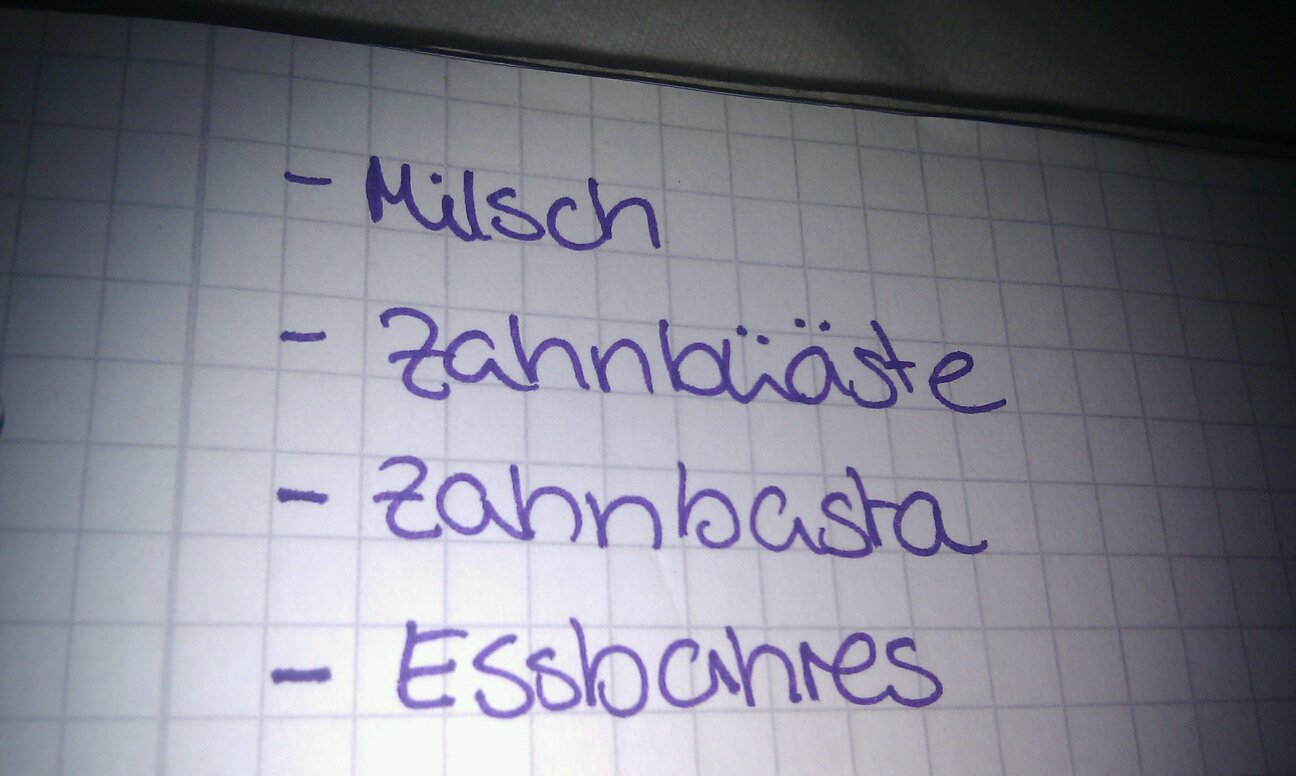 - Milsch
- Zahnbüäste
- Zahnbasta
- Essbahres